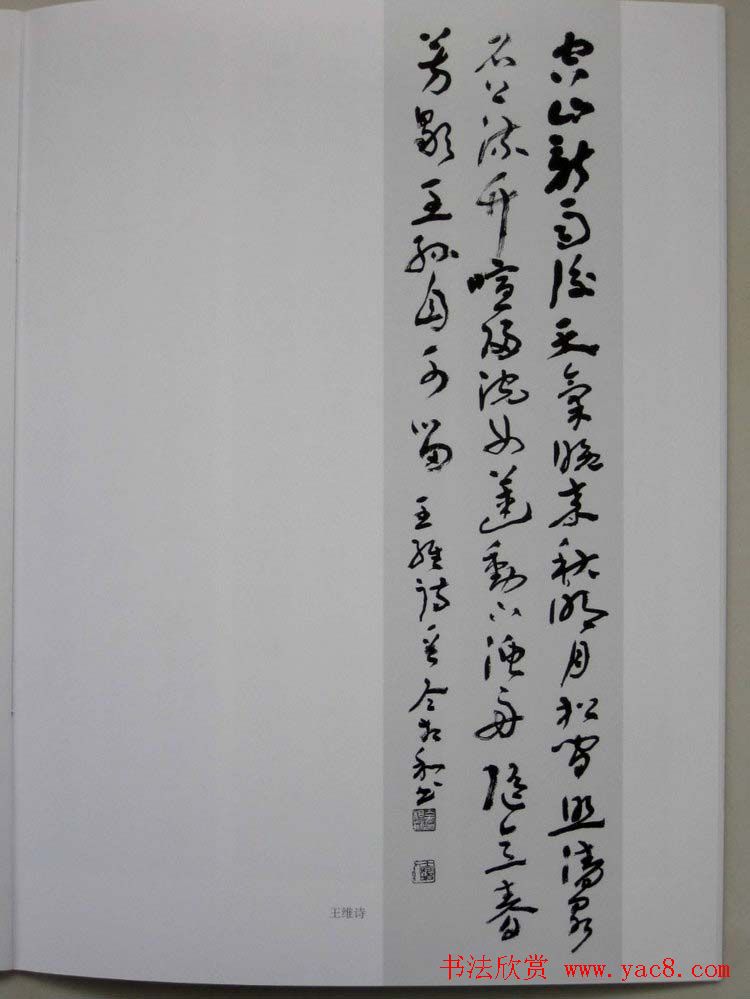 空山新雨後天氣晚来秋明月松間照清泉
石上流竹喧歸浣女蓮動下漁舟隨意春
芳歇王孫自可留 王維詩
王维诗
书法欣赏 www.yac8.com